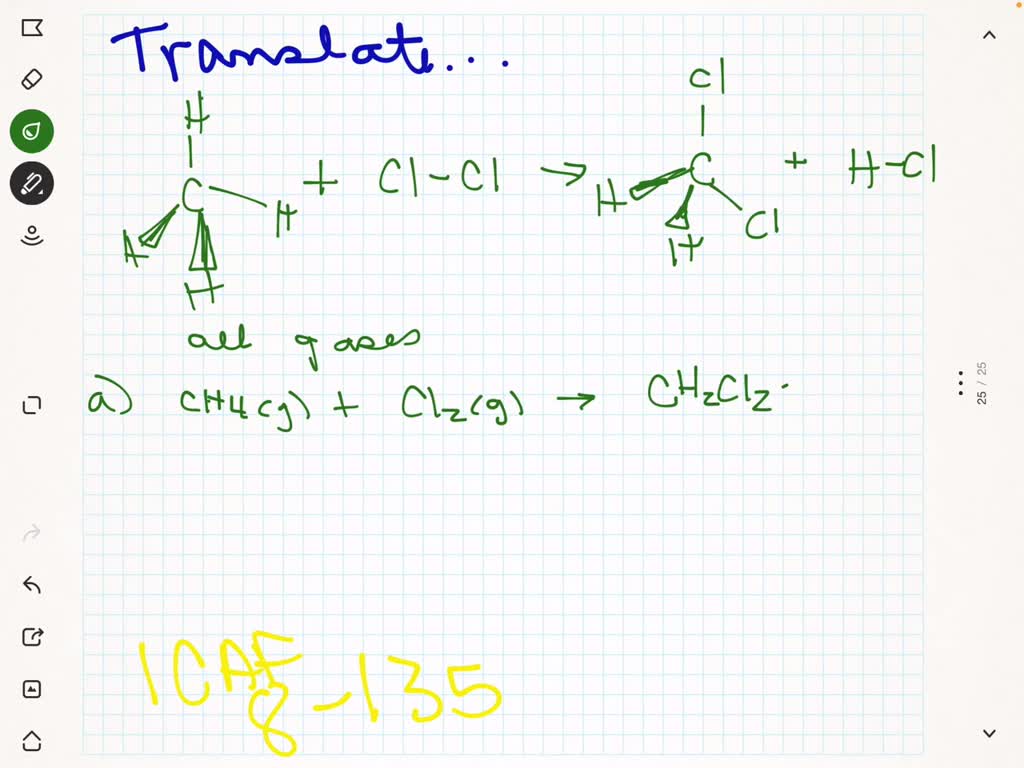 Translate...
H
C H H H + Cl-Cl → Cl C H H Cl + H-Cl
all gases
a) CH4(g) + Cl2(g) → CH2Cl2
1CAF
8-135
25 / 25